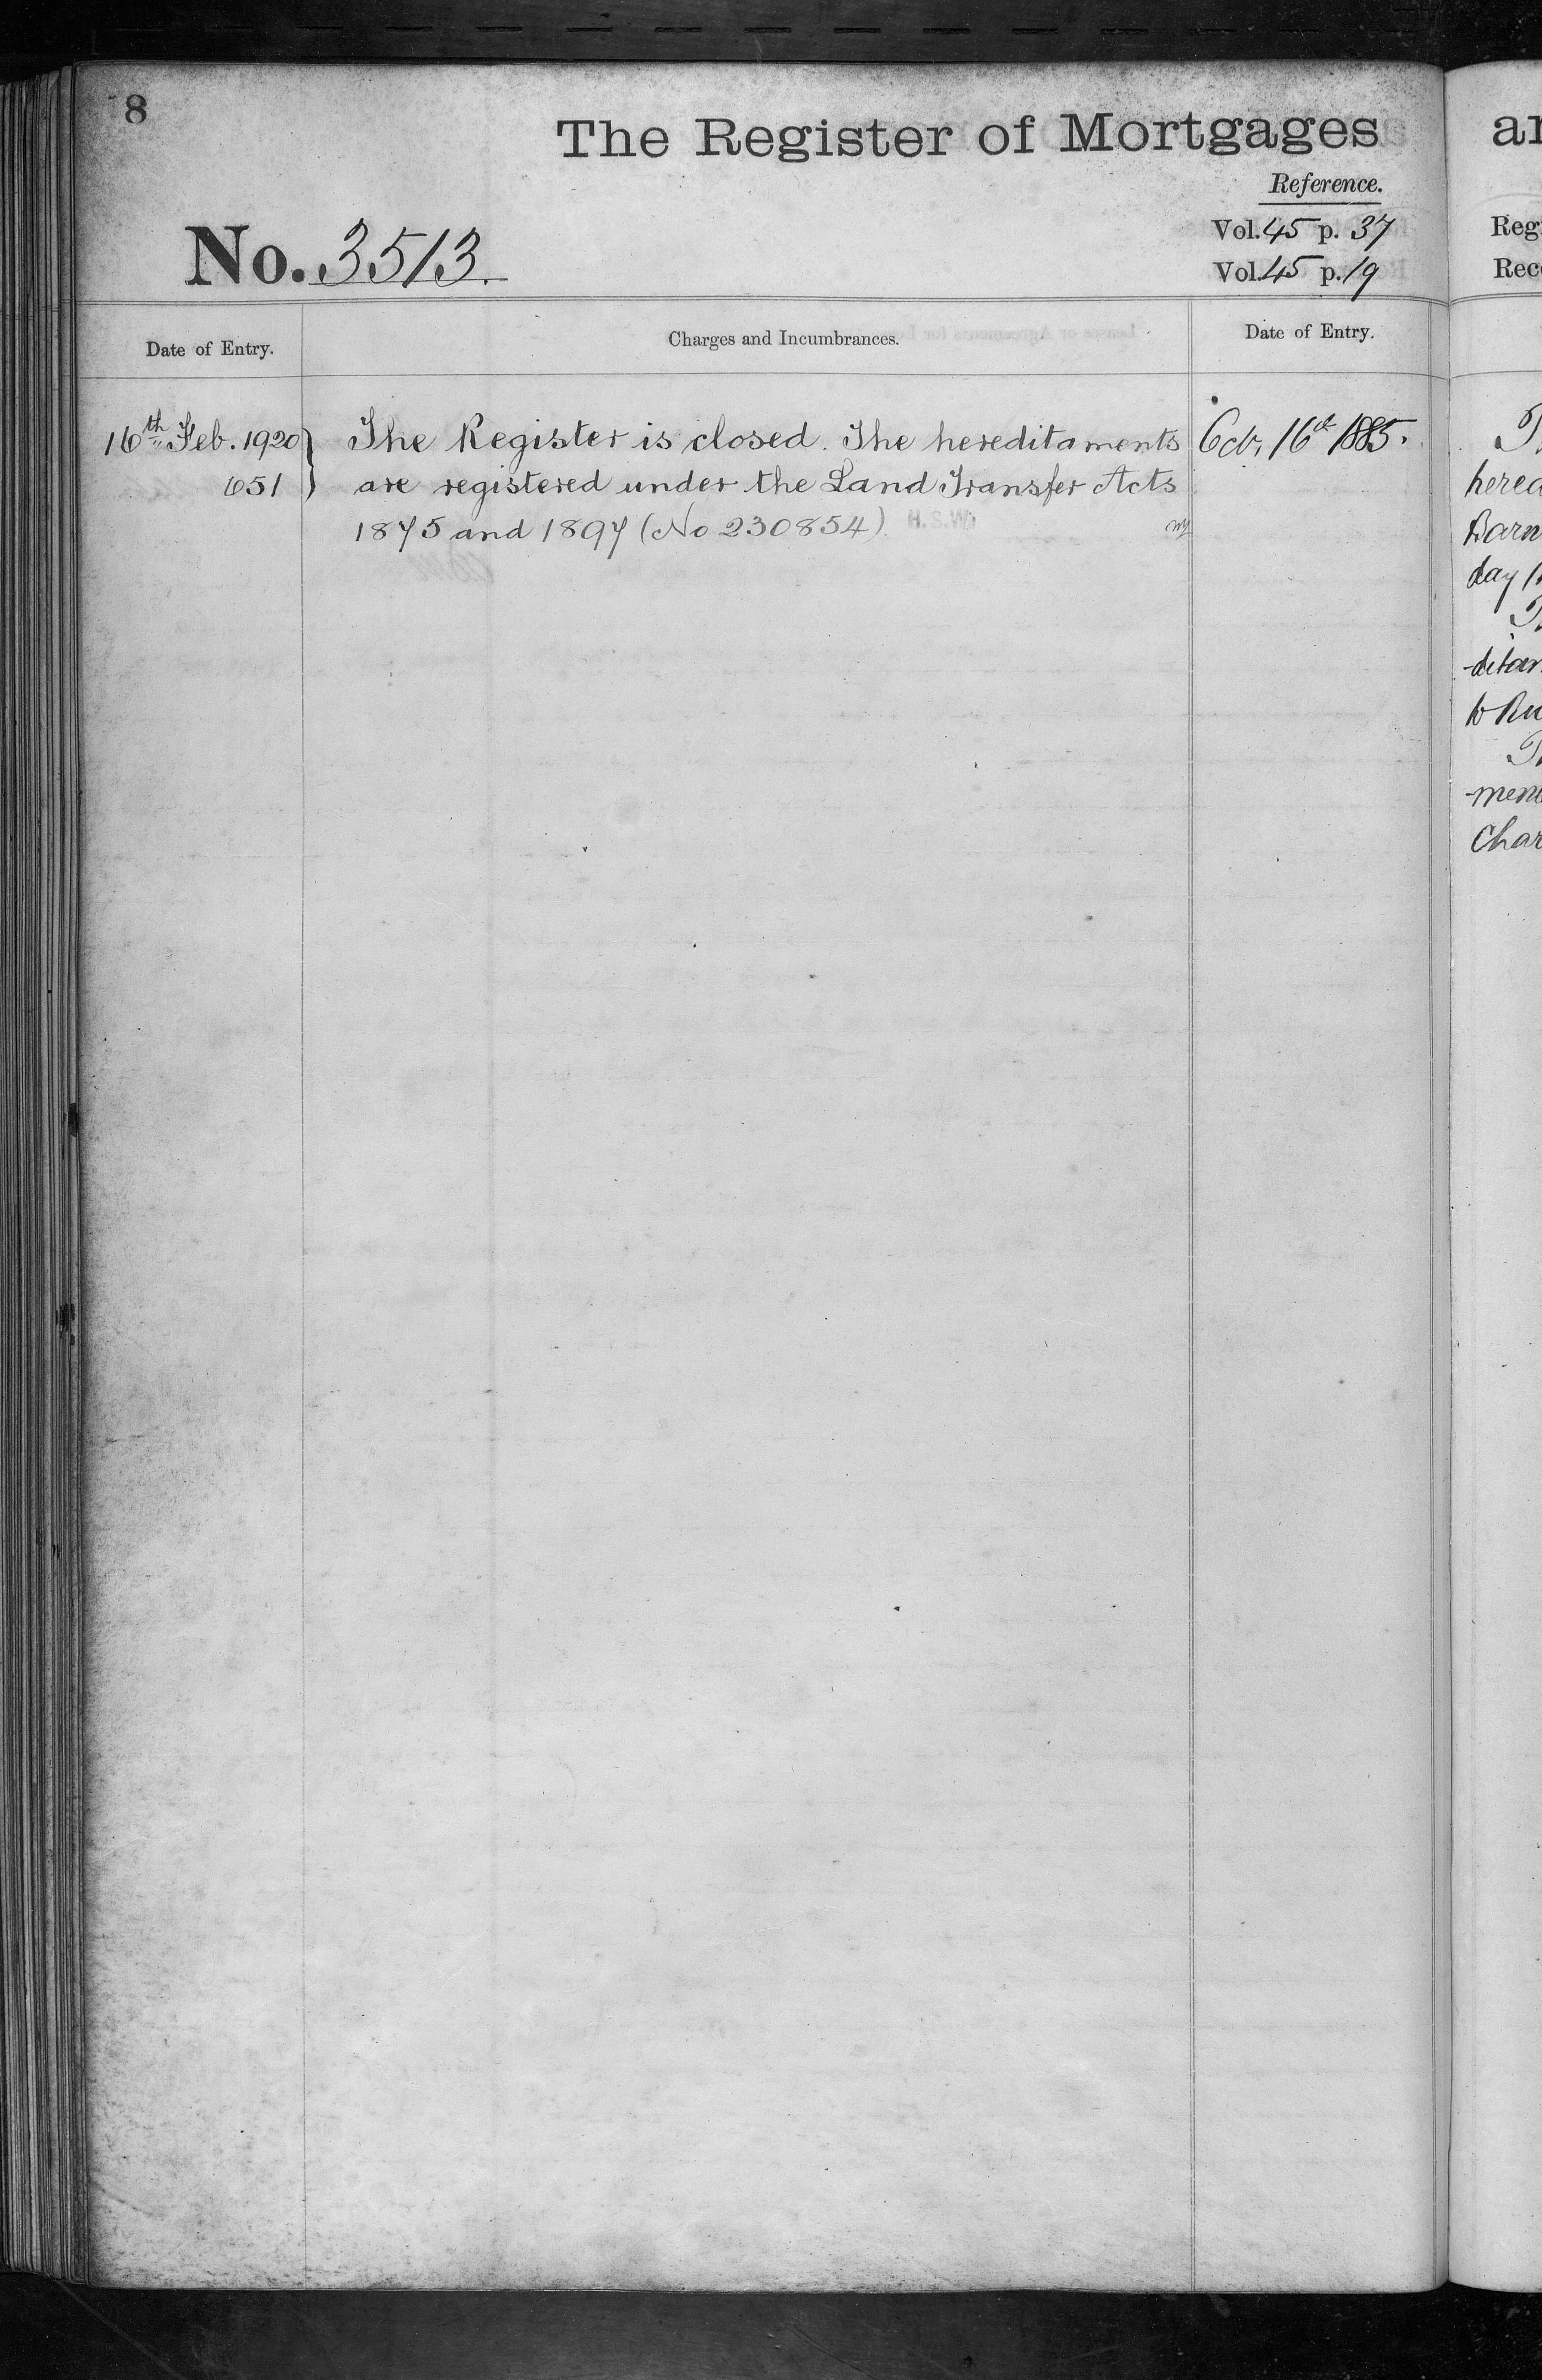 8
The Register of Mortgages
Reference.
No. 3513.
Vol. 45 p. 37
Vol. 45 p. 19
Date of Entry.
Charges and Incumbrances.
Date of Entry.
16th Feb. 1920
651
The Register is closed. The hereditaments
are registered under the Land Transfer Acts
1875 and 1897 (No 230854) H.S.W.
Oct. 16th 1885.
an
Reg
Rec
hered
Barn
day
-ditam
to Ru
-men
Char